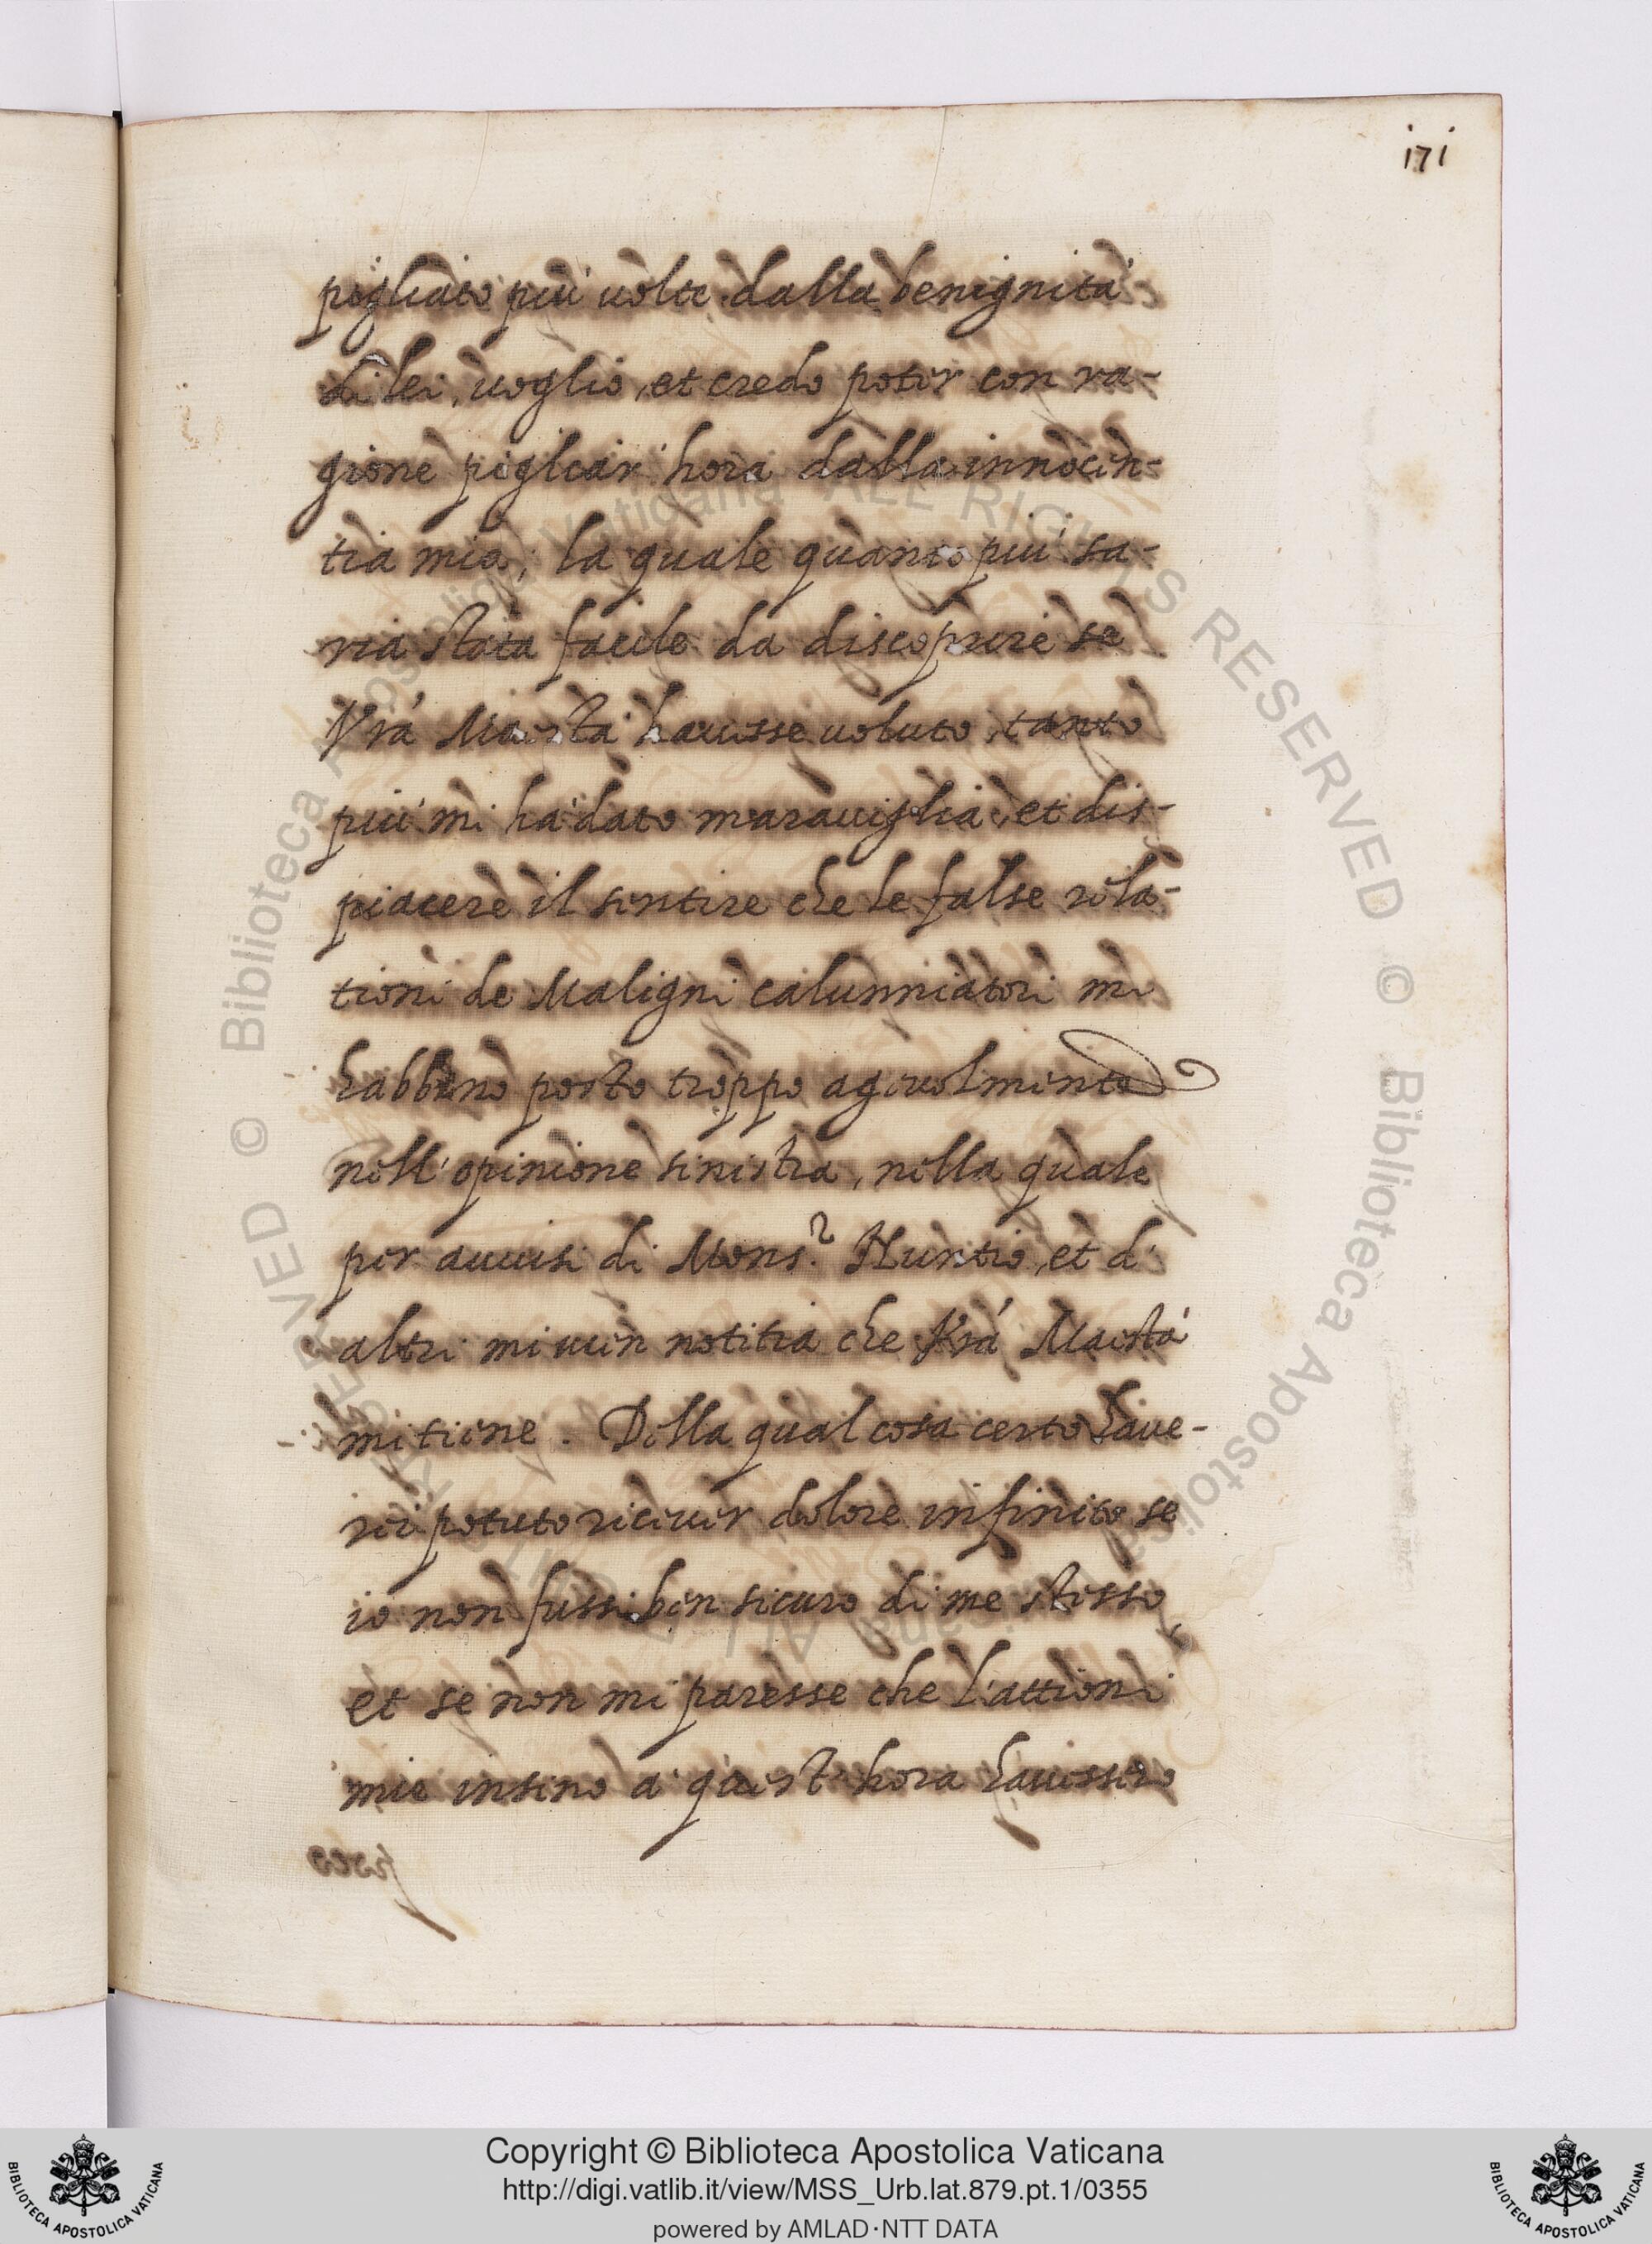 171
pigliato più uolte dalla benignità
di lei, uoglio, et credo poter con ra-
gione pigliar hora dalla innocen-
tia mia; la quale quanto più sa-
ria stata facile da discoprire se
Vrã Maestà hauesse uoluto, tanto
più mi ha dato marauiglia, et dis-
piacere il sentire che le false rela-
tioni de Maligni calunniatori mi
habbino posto troppo ageuolmente
nell'opinione sinistra, nella quale
per auuisi di Mons.r Nuntio, et d'
altri mi uien notitia che Vrã Maestà
mi tiene. Della qual cosa certo haue-
rei potuto riceuer dolore infinito se
io non fussi ben sicuro di me stesso
et se non mi paresse che l'attioni
mie insino a quest'hora hauessero
Copyright © Biblioteca Apostolica Vaticana
http://digi.vatlib.it/view/MSS_Urb.lat.879.pt.1/0355
powered by AMLAD·NTT DATA
BIBLIOTECA APOSTOLICA VATICANA
BIBLIOTECA APOSTOLICA VATICANA